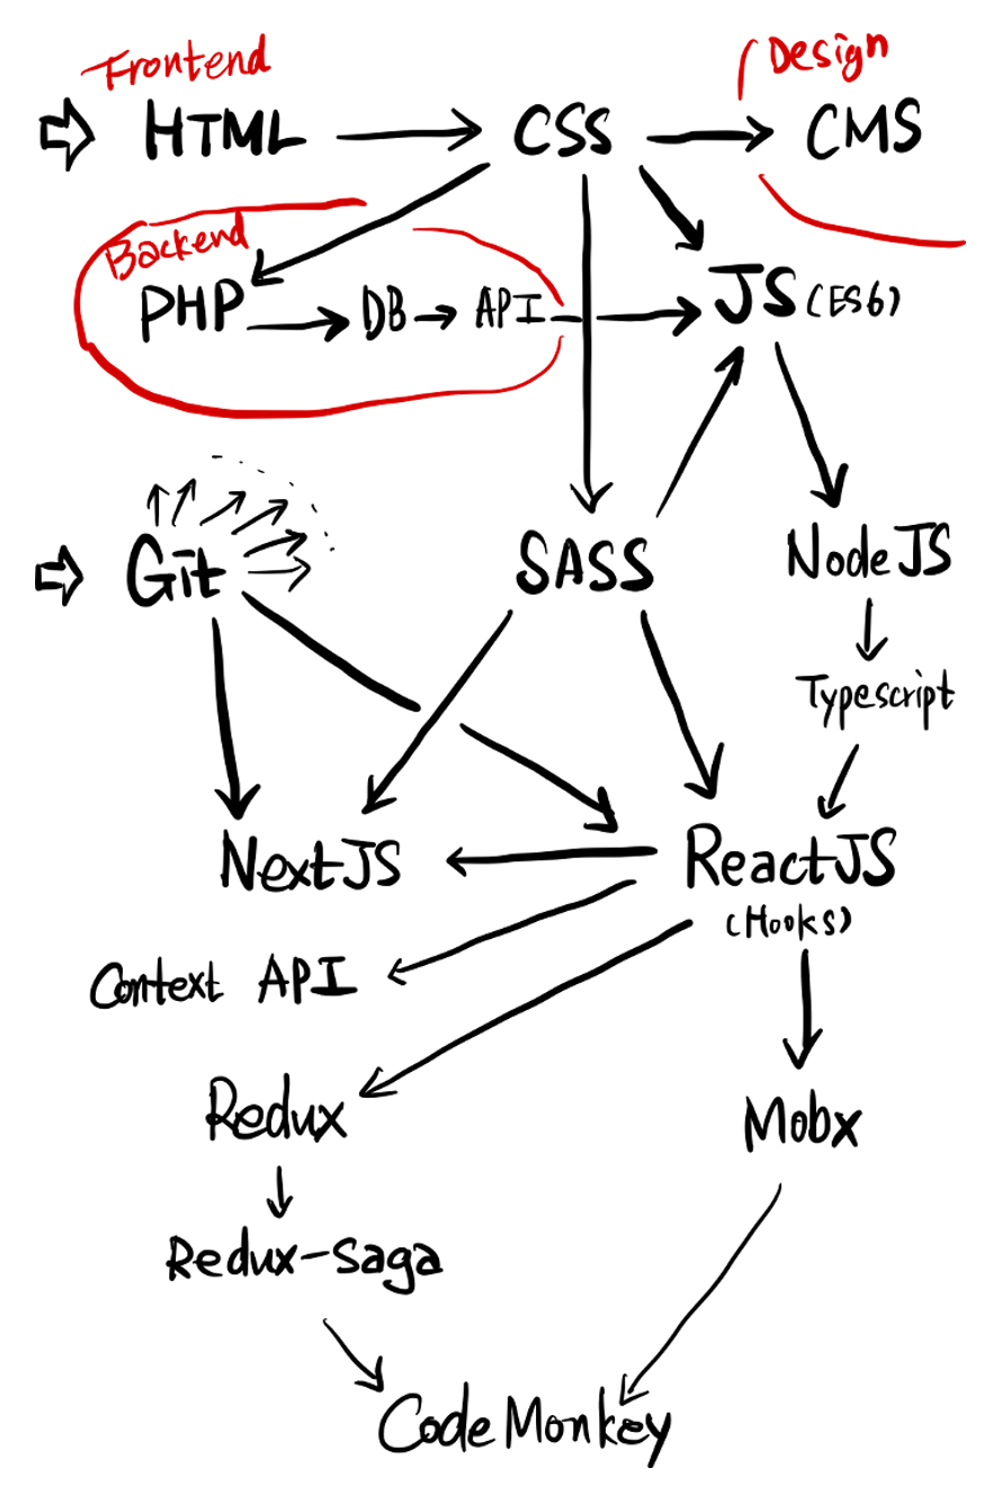 Frontend
Design
HTML
CSS
CMS
Backend
PHP
DB
API
JS (ES6)
Git
SASS
NodeJS
Typescript
NextJS
ReactJS
(Hooks)
Context API
Redux
Mobx
Redux-Saga
Code Monkey